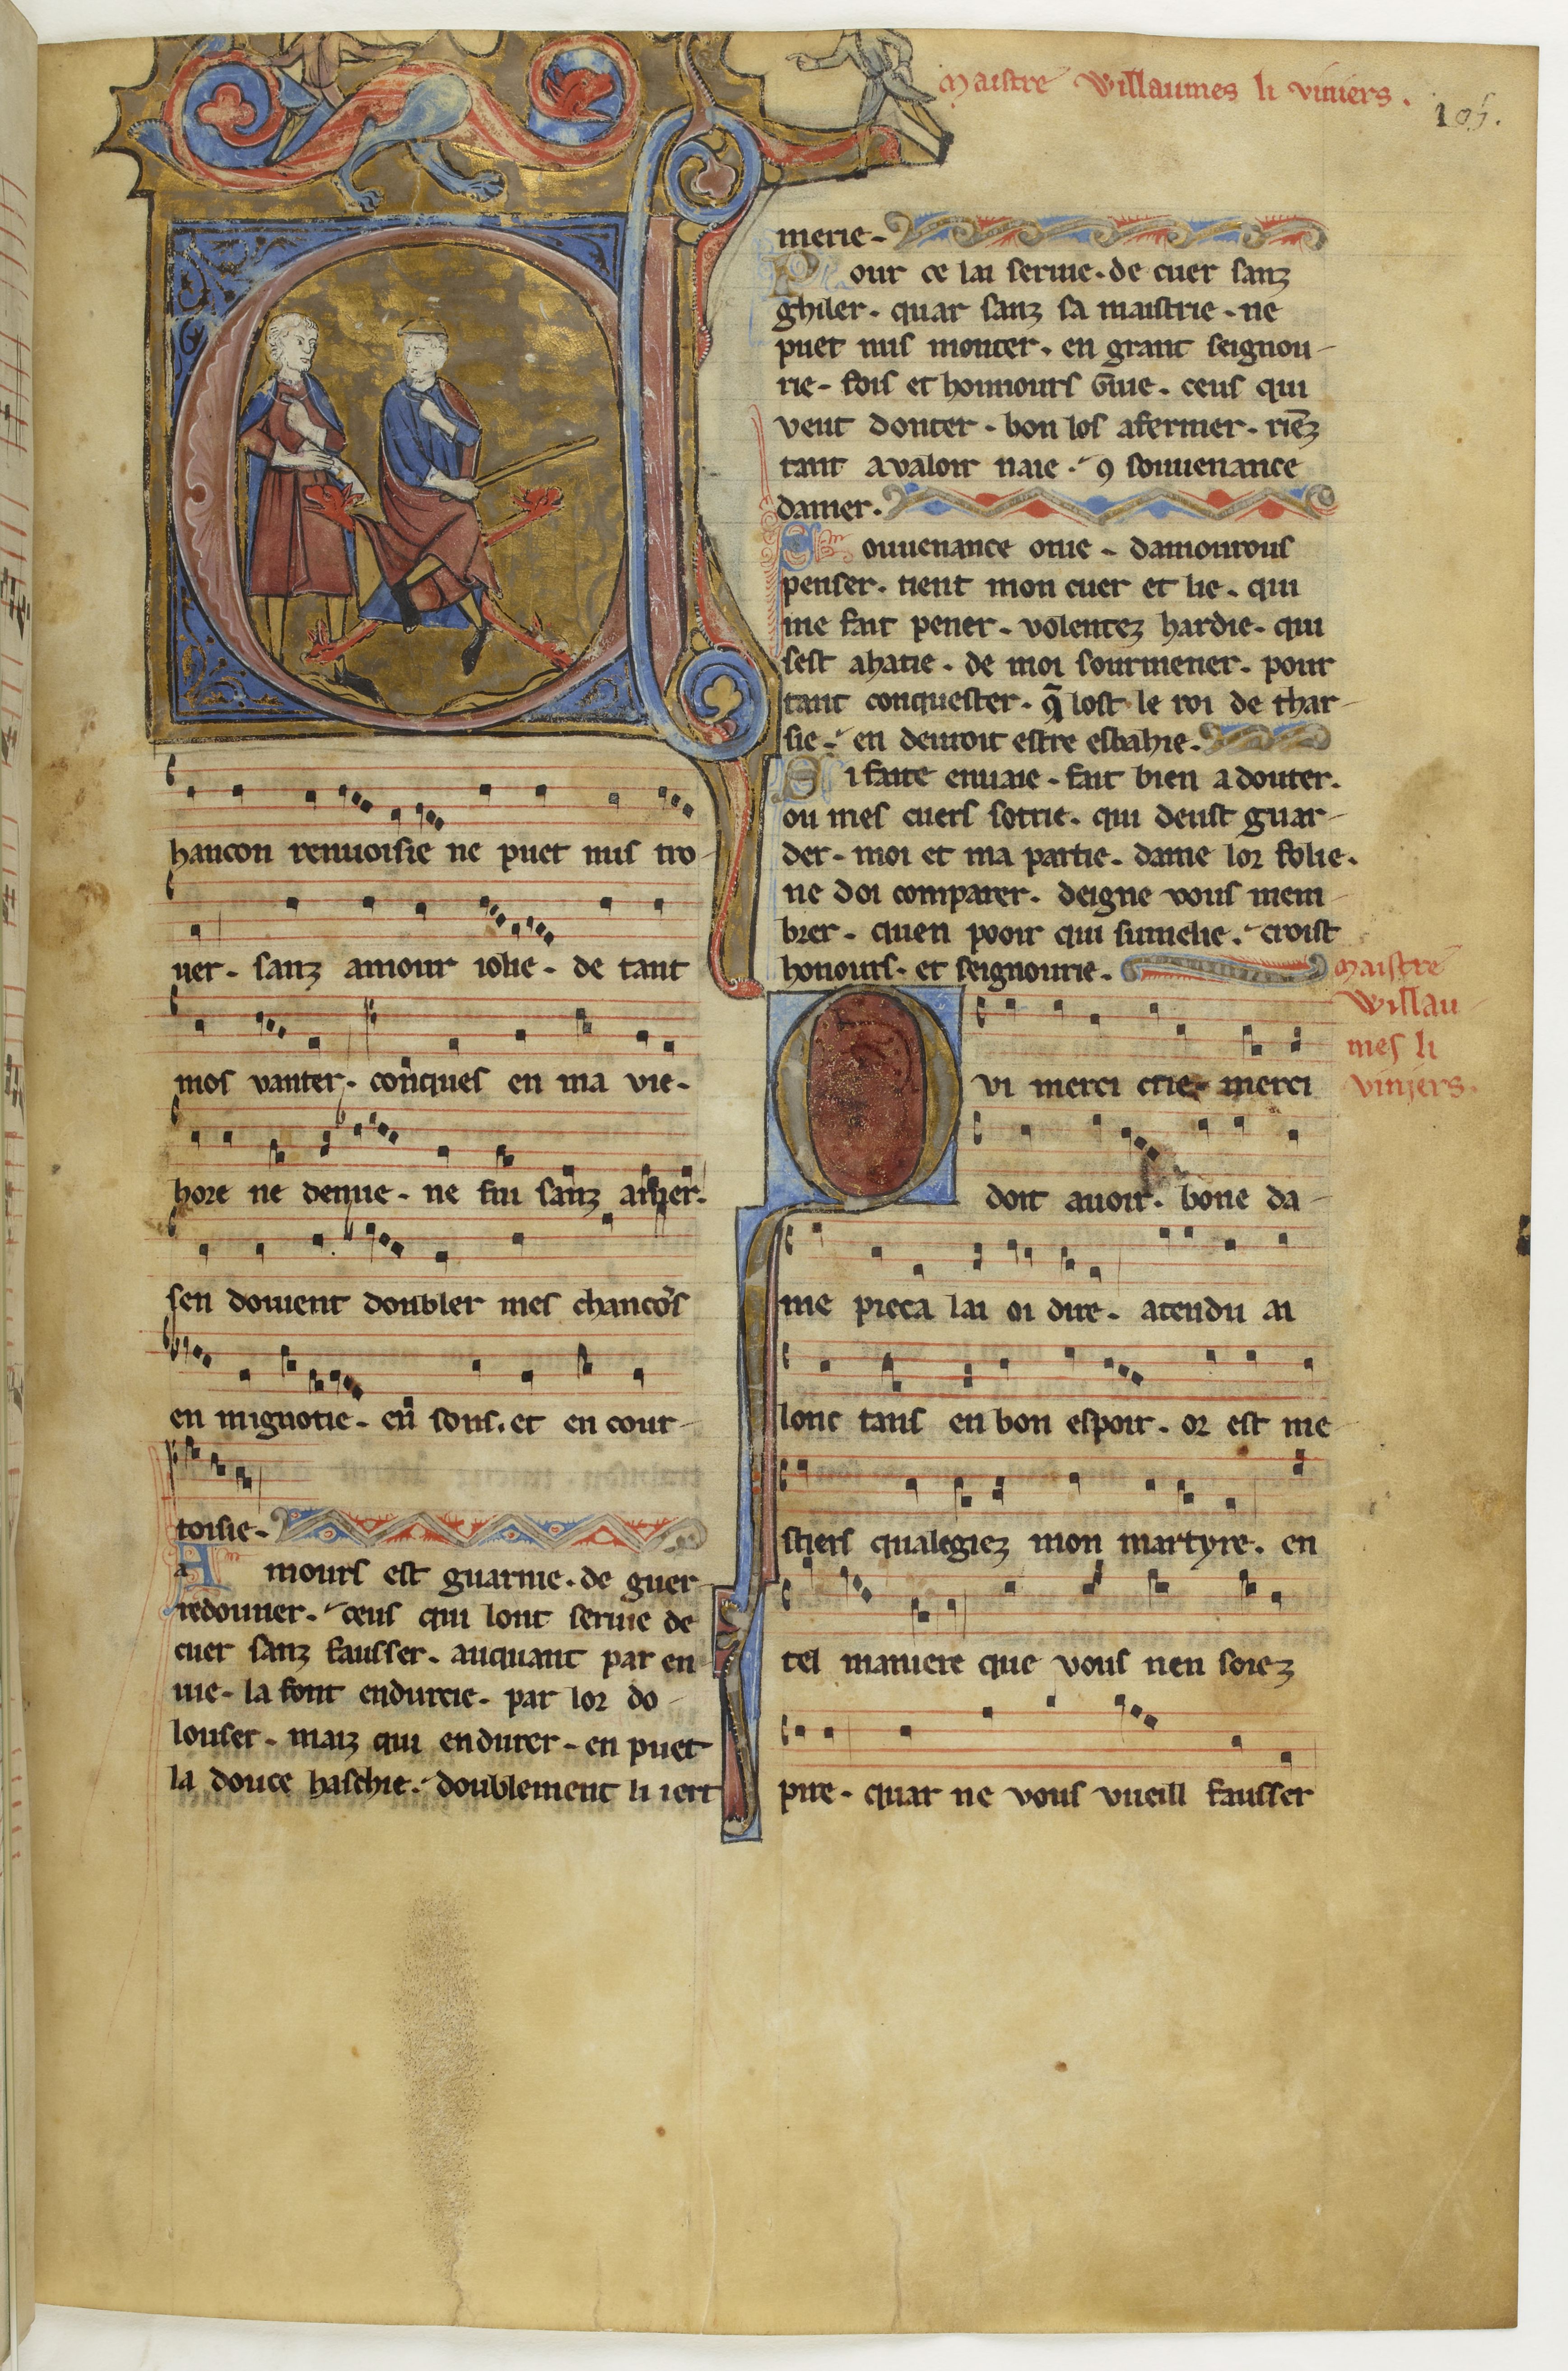 Maistre Willaumes li viniers.
105.
hancon renuoisie ne puet nus tro-
uer. sanz amour iolie. de tant
mos vanter. conques en ma vie.
hore ne demie. ne fui sanz amer.
sen doiuent doubler mes chancōs
en mignotie. en sons. et en cour-
toisie.
Amours est guarnie. de guer-
redonner. ceus qui lont seruie de
cuer sanz fausser. auquant par en
uie. la font endurcie. par lor do-
louser. maiz qui endurer. en puet
la douce haschie. doublement li iert
merie.
Pour ce lai seruie. de cuer sanz
ghiler. quar sanz sa maistrie. ne
puet nus monter. en grant seignou-
rie. sois et honnours
ceus qui
veut donter. bon los afermer. riēz
tant a valoir naie. ꝯ souuenance
damer.
Souuenance
damourous
penser. tient mon cuer et lie. qui
me fait pener. volentez hardie. qui
sest ahatie. de moi sourmener. pour
tant conquester. q̄ lost le roi de thar-
sie. en deuroit estre esbahie.
Si faite enuaie. fait bien a douter.
ou mes cuers sotrie. qui deust guar-
der. moi et ma partie. dame lor folie.
ne doi comparer. deigne vous mem-
brer. quen pooir qui sumelie. croist
honours. et seignourie.
Maistre
Willau-
mes li
viniers.
Qvi merci crie. merci
doit auoir. bone da-
me pieca lai oi dire. atendu ai
lonc tans en bon espoir. or est me-
stiers qualegiez mon martyre. en
tel maniere que vous nen soiez
pire. quar ne vous vueill fausser